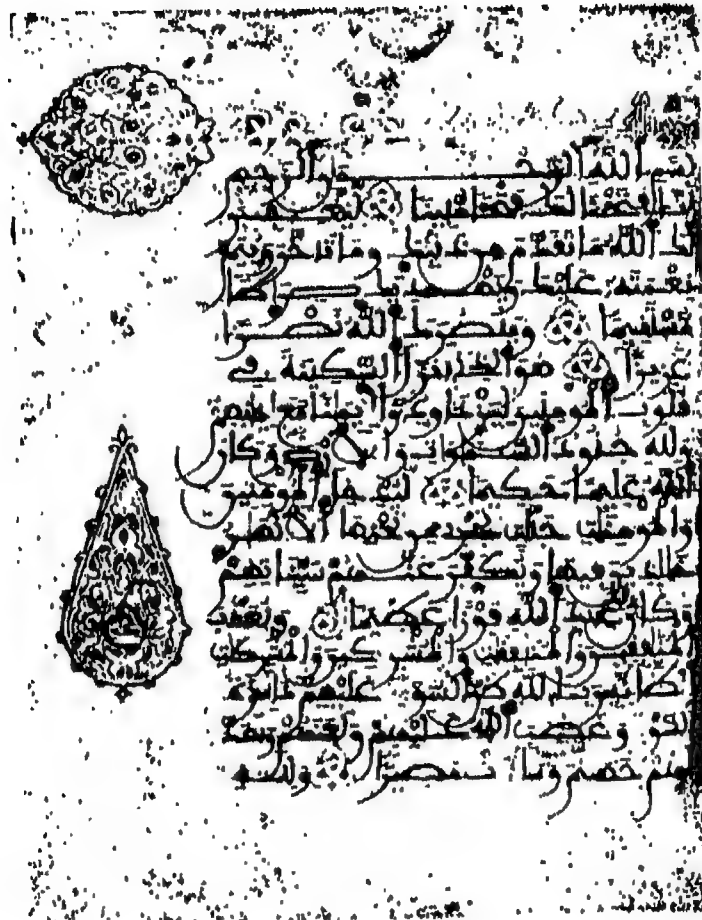 بسم الله الرحمن الرحيم
إنا فتحنا لك فتحا مبينا ليغفر
لك الله ما تقدم من ذنبك وما تأخر ويتم
نعمته عليك ويهديك صراطا
مستقيما وينصرك الله نصرا
عزيزا هو الذي أنزل السكينة في
قلوب المومنين ليزدادوا إيمانا مع إيمنهم
ولله جنود السموات والارض وكان
الله عليما حكيما ليدخل المومنين
والمومنت جنت تجري من تحتها الانهر
خلدين فيها ويكفر عنهم سيئاتهم
وكان عند الله فوزا عظيما ويعذب
المنفقين والمنفقت والمشركين والمشركت
الظانين بالله ظن السوء عليهم دائرة
السوء وغضب الله عليهم ولعنهم وأعد
لهم جهنم وساءت مصيرا ولله